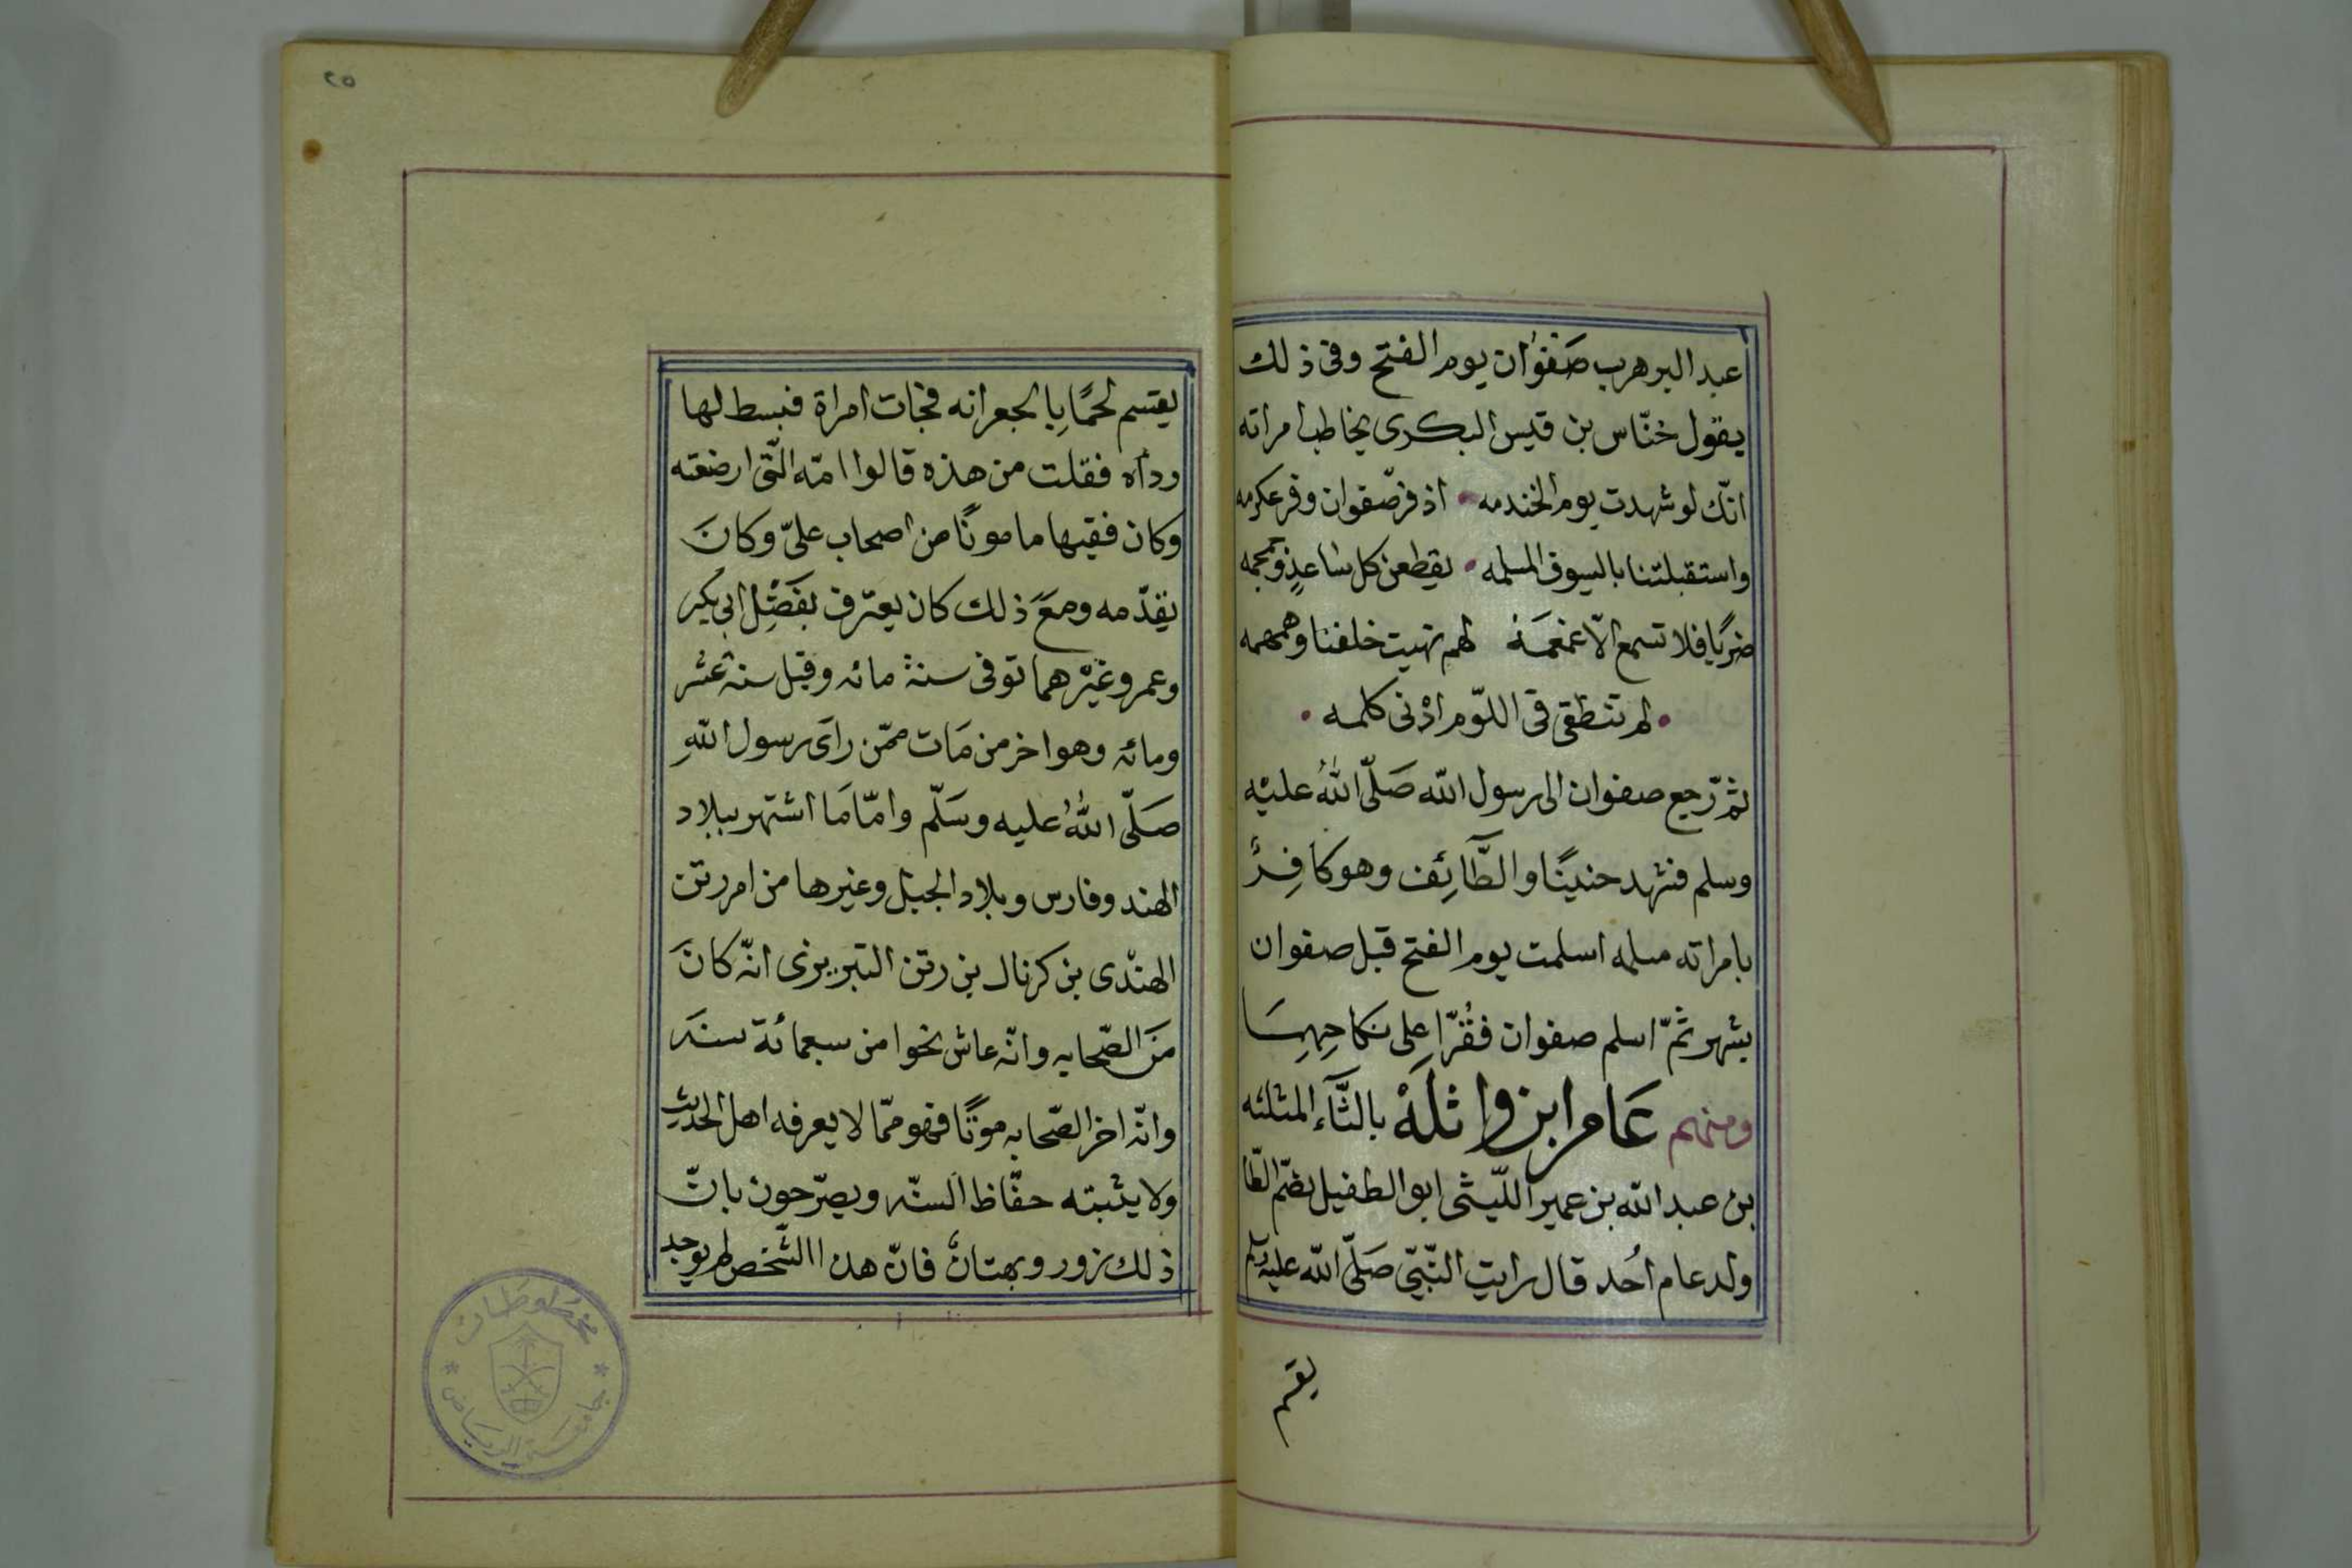 عبد البر هرب صَفوْان يوم الفتح وفى ذلك
يقول خنّاس بن قيس البكرى يخاطب امراته
انّك لو شهدت يوم الخندمه • اذ فرّ صفوان وفر عكرمه
واستقبلتنا بالسيوف المسلمه • يقطعن كل ساعدٍ وجمجمه
ضربًا فلا تسمع الّا غمغمَة لهم نهيت خلفنا وهمهمه
• لم تنطقى فى اللّوم ادْنى كلمه •
ثمّ رجع صفوان الى رسول الله صَلّى اللهُ عليْه
وسلم فشهد حنينًا والطَّآئِف وهو كافِرٌ
بامراته مسلمه اسلمت يوم الفتح قبل صفوان
بشهر ثمّ اسلم صفوان فقُرّا على نكاحِهِمَا
ومنهم عَامر ابن واثلَةْ بالثَّآء المثلثه
بن عبد الله بن عمير اللّيثى ابو الطفيل بضمّ الطّا
ولد عام اُحد قال رايت النّبىّ صَلّى الله عليه وسلم
يقسم
٢٥
يقتسم لحمًا بِالجعرانه فجات امراة فبسط لها
ردآه فقلت من هذه قالوا امّه الّتى ارضعته
وكان فقيها مامونًا من اصحاب علىّ وكانَ
يقدّمه ومعَ ذلك كان يعترف بفَضْلِ ابى بكر
وعمر وغيْرهما توفى سنة مائه وقيل سنه عشر
ومائه وهو اخر من مَات ممّن راَى رسول اللهِ
صَلّى اللهُ عليه وسَلّم وامّا مَا اشتهر ببلاد
الهند وفارس وبلاد الجبل وغيرها من امر رتن
الهنْدى بن كرنال بن رتن التبريزى انّه كانَ
مَن الصّحابه وانّه عاش نحوا من سبعمائة سنَه
وانّه اخر الصّحابه موتًا فهو ممّا لا يعرفه اهل الحديثِ
ولا يثبته حفّاظ السنّه ويصرّحون بانّ
ذلك زور وبهتانٌ فانّ هذا الشّخص لم يوجد
مخطوطات
جامعة الرياض